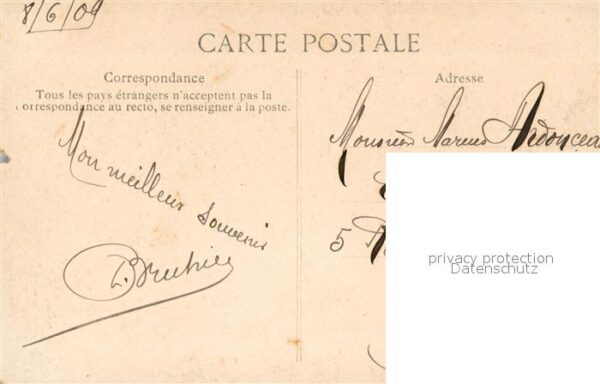 8/6/09
CARTE POSTALE
Correspondance
Tous les pays étrangers n'acceptent pas la
correspondance au recto, se renseigner à la poste.
Mon meilleur souvenir
Adresse
Monsieur Marius
5
privacy protection
Datenschutz